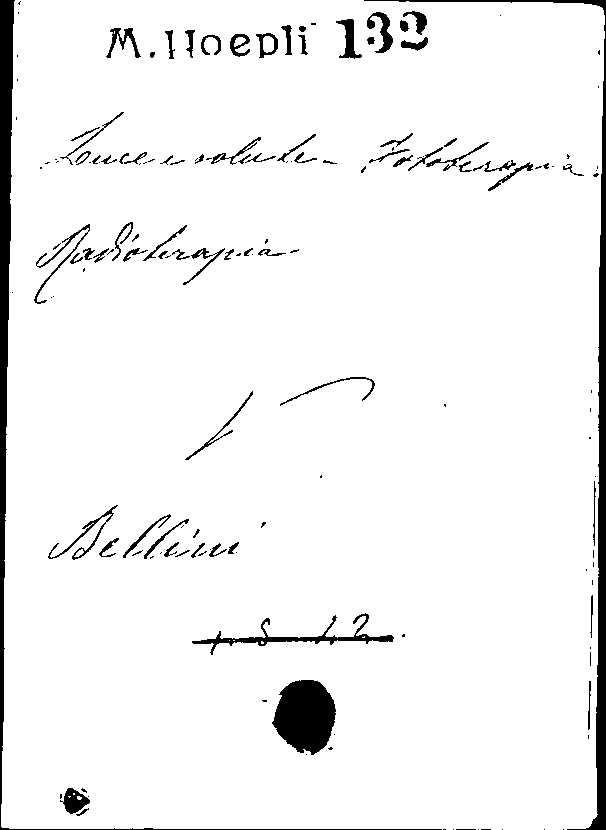 M. Hoepli 132
Luce e salute - Fototerapia.
Radioterapia
V
Bellini